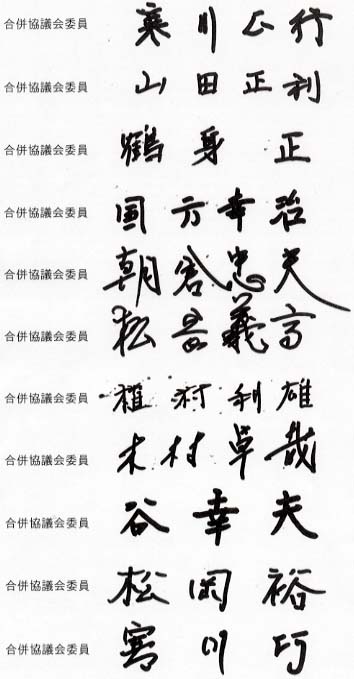 合併協議会委員 寒川公行
合併協議会委員 山田正利
合併協議会委員 鶴身正
合併協議会委員 国方幸治
合併協議会委員 朝倉忠夫
合併協議会委員 松岡義高
合併協議会委員 植村利雄
合併協議会委員 木村卓哉
合併協議会委員 谷幸夫
合併協議会委員 松岡裕
合併協議会委員 寒川巧